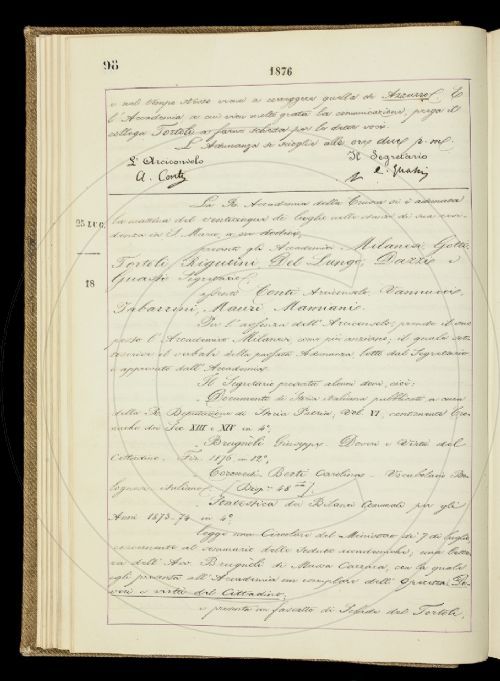 98
1876
e nel tempo stesso viene a correggere quella di Azzurro. E
l'Accademia a cui riesce molto grata la comunicazione, prega il
collega Tortoli a farne scheda per la detta voce.
L'Adunanza si scioglie alle ore due p. m.
L'Arciconsolo
Il Segretario
A. Conti
C. Guasti
25 LUG.
18
La R. Accademia della Crusca si è adunata
la mattina del venticinque di luglio nelle stanze di sua resi-
denza in S. Marco, a ore dodici,
presenti gli Accademici Milanesi, Gotti,
Tortoli, Rigutini, Del Lungo, Dazzi e
Guasti Segretario,
assenti Conti Arciconsolo, Vannucci,
Tabarrini, Mauri, Mamiani.
Per l'assenza dell'Arciconsolo, prende il suo
posto l'Accademico Milanesi, come più anziano, il quale sot-
toscrive il verbale della passata Adunanza, letto dal Segretario
e approvato dall'Accademia.
Il Segretario presenta alcuni doni, cioè:
Documenti di Storia italiana pubblicati a cura
della R. Deputazione di Storia Patria, Vol. VI, contenente Cro-
nache dei Sec. XIII e XIV in 4°.
Brugnoli Giuseppe. Doveri e Virtù del
Cittadino. Fir. 1876 in 12°.
Coronedi Berti Carolina. Vocabolario Bo-
lognese italiano. (Disp. 48)
Statistica dei Bilanci Comunali per gli
Anni 1873-74 in 4°.
Legge una Circolare del Ministero di 7 di luglio
concernente al sommario delle sedute accademiche, una lette-
ra dell'Avv. Brugnoli di Massa Carrara, con la quale
egli presenta all'Accademia un esemplare dell'Operetta Do-
veri e virtù del Cittadino;
e presenta un fascetto di Schede del Tortoli,